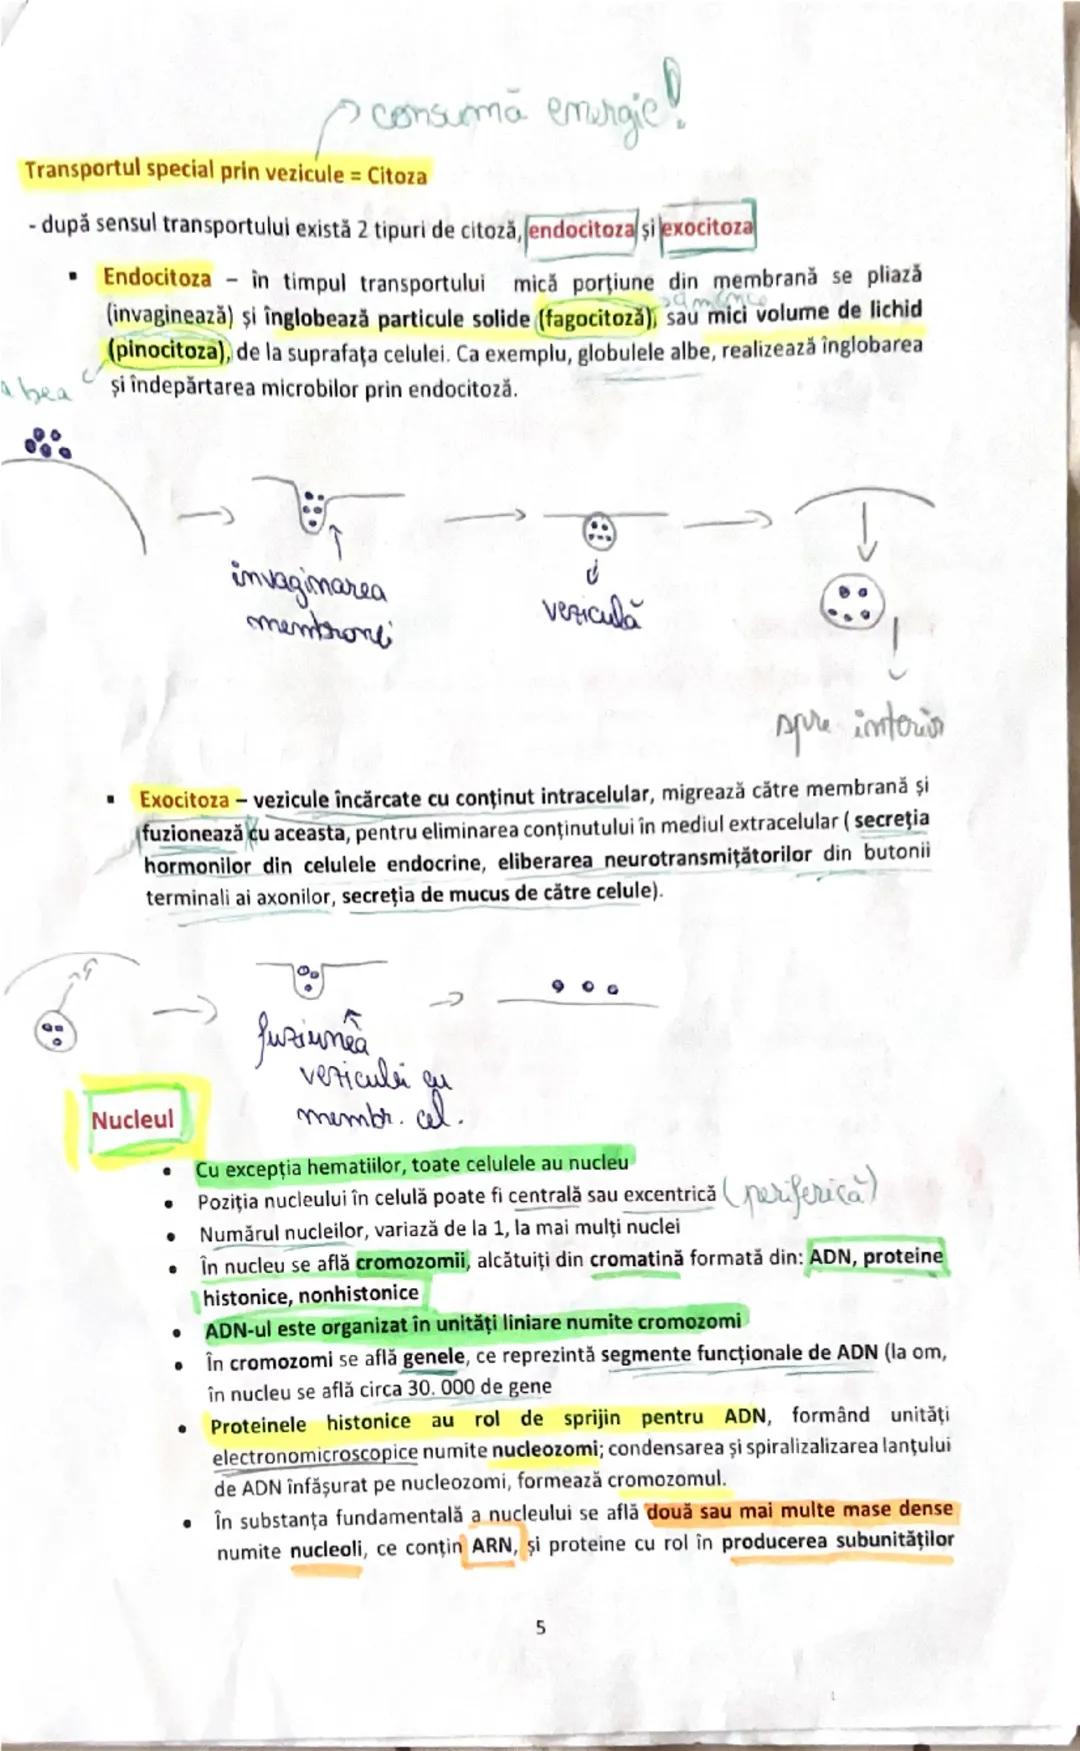 consumă energie!
Transportul special prin vezicule = Citoza
- după sensul transportului există 2 tipuri de citoză, endocitoza și exocitoza
▪ Endocitoza – în timpul transportului mică porțiune din membrană se pliază
(invaginează) și înglobează particule solide (fagocitoză), sau mici volume de lichid
(pinocitoza), de la suprafața celulei. Ca exemplu, globulele albe, realizează înglobarea
a bea
și îndepărtarea microbilor prin endocitoză.
invaginarea
membranei
veziculă
spre interior
▪ Exocitoza – vezicule încărcate cu conținut intracelular, migrează către membrană și
fuzionează cu aceasta, pentru eliminarea conținutului în mediul extracelular ( secreția
hormonilor din celulele endocrine, eliberarea neurotransmițătorilor din butonii
terminali ai axonilor, secreția de mucus de către celule).
fuziunea
veziculei cu
membr. cel.
Nucleul
• Cu excepția hematiilor, toate celulele au nucleu
• Poziția nucleului în celulă poate fi centrală sau excentrică (periferică)
• Numărul nucleilor, variază de la 1, la mai mulți nuclei
• În nucleu se află cromozomii, alcătuiți din cromatină formată din: ADN, proteine
histonice, nonhistonice
• ADN-ul este organizat în unități liniare numite cromozomi
• În cromozomi se află genele, ce reprezintă segmente funcționale de ADN (la om,
în nucleu se află circa 30. 000 de gene
• Proteinele histonice au rol de sprijin pentru ADN, formând unități
electronomicroscopice numite nucleozomi; condensarea și spiralizalizarea lanțului
de ADN înfășurat pe nucleozomi, formează cromozomul.
• În substanța fundamentală a nucleului se află două sau mai multe mase dense
numite nucleoli, ce conțin ARN, și proteine cu rol în producerea subunităților
5